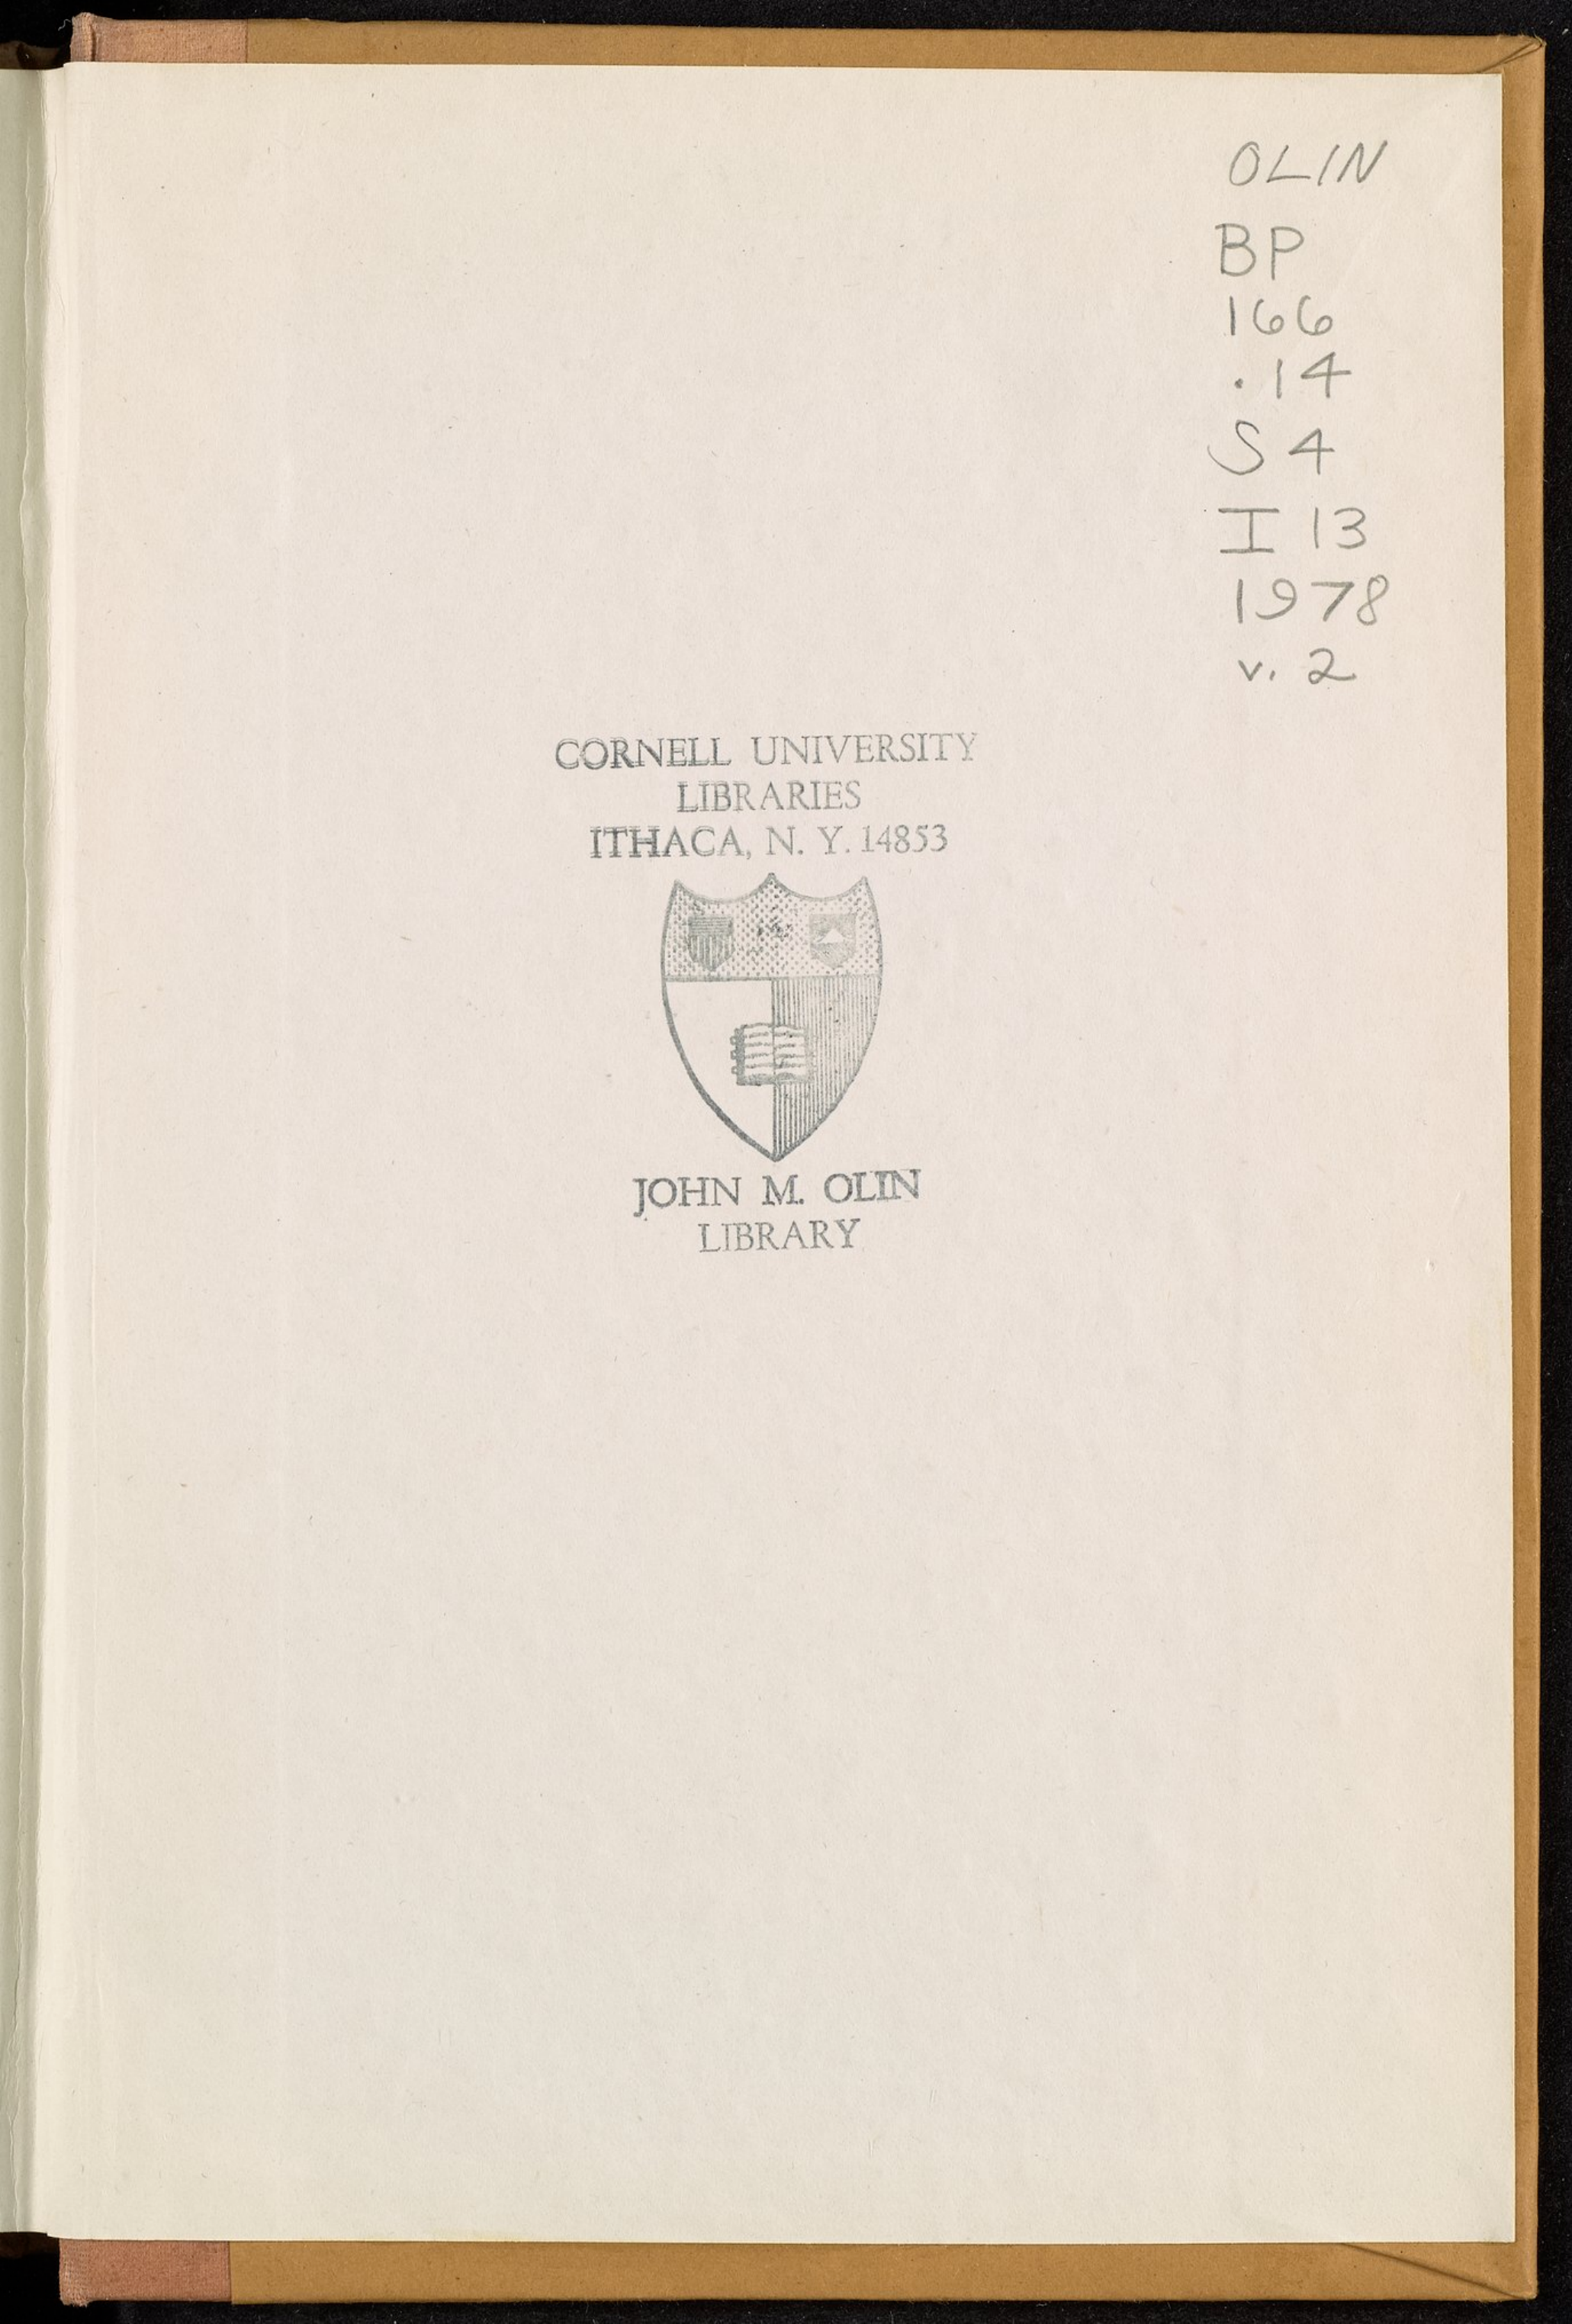 OLIN
BP
166
.14
S4
I 13
1978
v. 2
CORNELL UNIVERSITY
LIBRARIES
ITHACA, N. Y. 14853
JOHN M. OLIN
LIBRARY